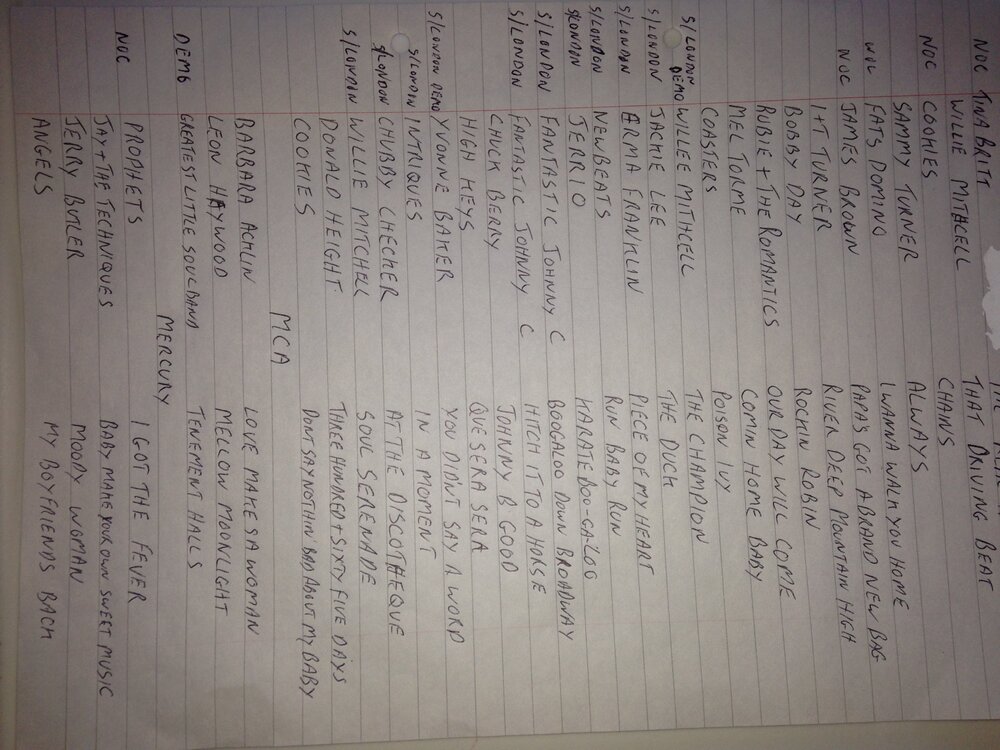 NOC TINA BRITT THE
WILLIE MITHCELL THAT DRIVING BEAT
NOC COOKIES CHAINS
SAMMY TURNER ALWAYS
NOC FATS DOMINO I WANNA WALK YOU HOME
NOC JAMES BROWN PAPA'S GOT A BRAND NEW BAG
I+T TURNER RIVER DEEP MOUNTAIN HIGH
BOBBY DAY ROCKIN ROBIN
RUBIE + THE ROMANTICS OUR DAY WILL COME
MEL TORME COMIN HOME BABY
COASTERS POISON IVY
S/LONDON DEMO WILLEE MITHCELL THE CHAMPION
S/LONDON JACKIE LEE THE DUCK
S/LONDON ERMA FRANKLIN PIECE OF MY HEART
S/LONDON NEWBEATS RUN BABY RUN
S/LONDON JERRIO KARATE BOO-GA-LOO
S/LONDON FANTASTIC JOHNNY C BOOGALOO DOWN BROADWAY
S/LONDON FANTASTIC JOHNNY C HITCH IT TO A HORSE
CHUCK BERRY JOHNNY B GOOD
HIGH KEYS QUE SERA SERA
S/LONDON DEMO YVONNE BAKER YOU DIDNT SAY A WORD
S/LONDON INTRIQUES IN A MOMENT
S/LONDON CHUBBY CHECKER AT THE DISCOTHEQUE
S/LONDON WILLIE MITCHELL SOUL SERENADE
DONALD HEIGHT THREE HUNDRED + SIXTY FIVE DAYS
COOKIES DONT SAY NOTHIN BAD ABOUT MY BABY
MCA
BARBARA ACKLIN LOVE MAKES A WOMAN
LEON HAYWOOD MELLOW MOONLIGHT
DEMO GREATEST LITTLE SOUL BAND TENEMENT HALLS
MERCURY
NOC PROPHETS I GOT THE FEVER
JAY + THE TECHNIQUES BABY MAKE YOUR OWN SWEET MUSIC
JERRY BUTLER MOODY WOMAN
ANGELS MY BOYFRIENDS BACK